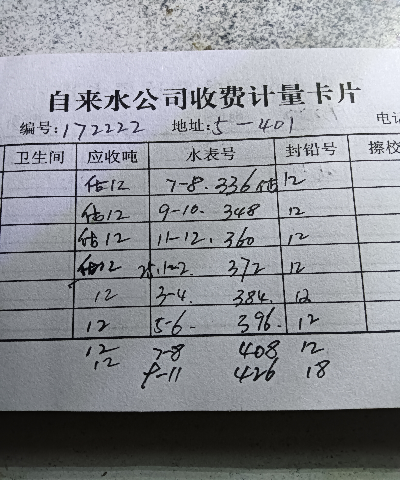 自来水公司收费计量卡片
编号:172222 地址:5-401 电话
卫生间 应收吨 水表号 封铅号 擦校
估12 7-8. 336估 12
估12 9-10. 348 12
估12 11-12. 360 12
估12 25.1-2 372 12
12 3-4. 384. 12
12 5-6. 396. 12
12 7-8 408 12
12 9-11 426 18